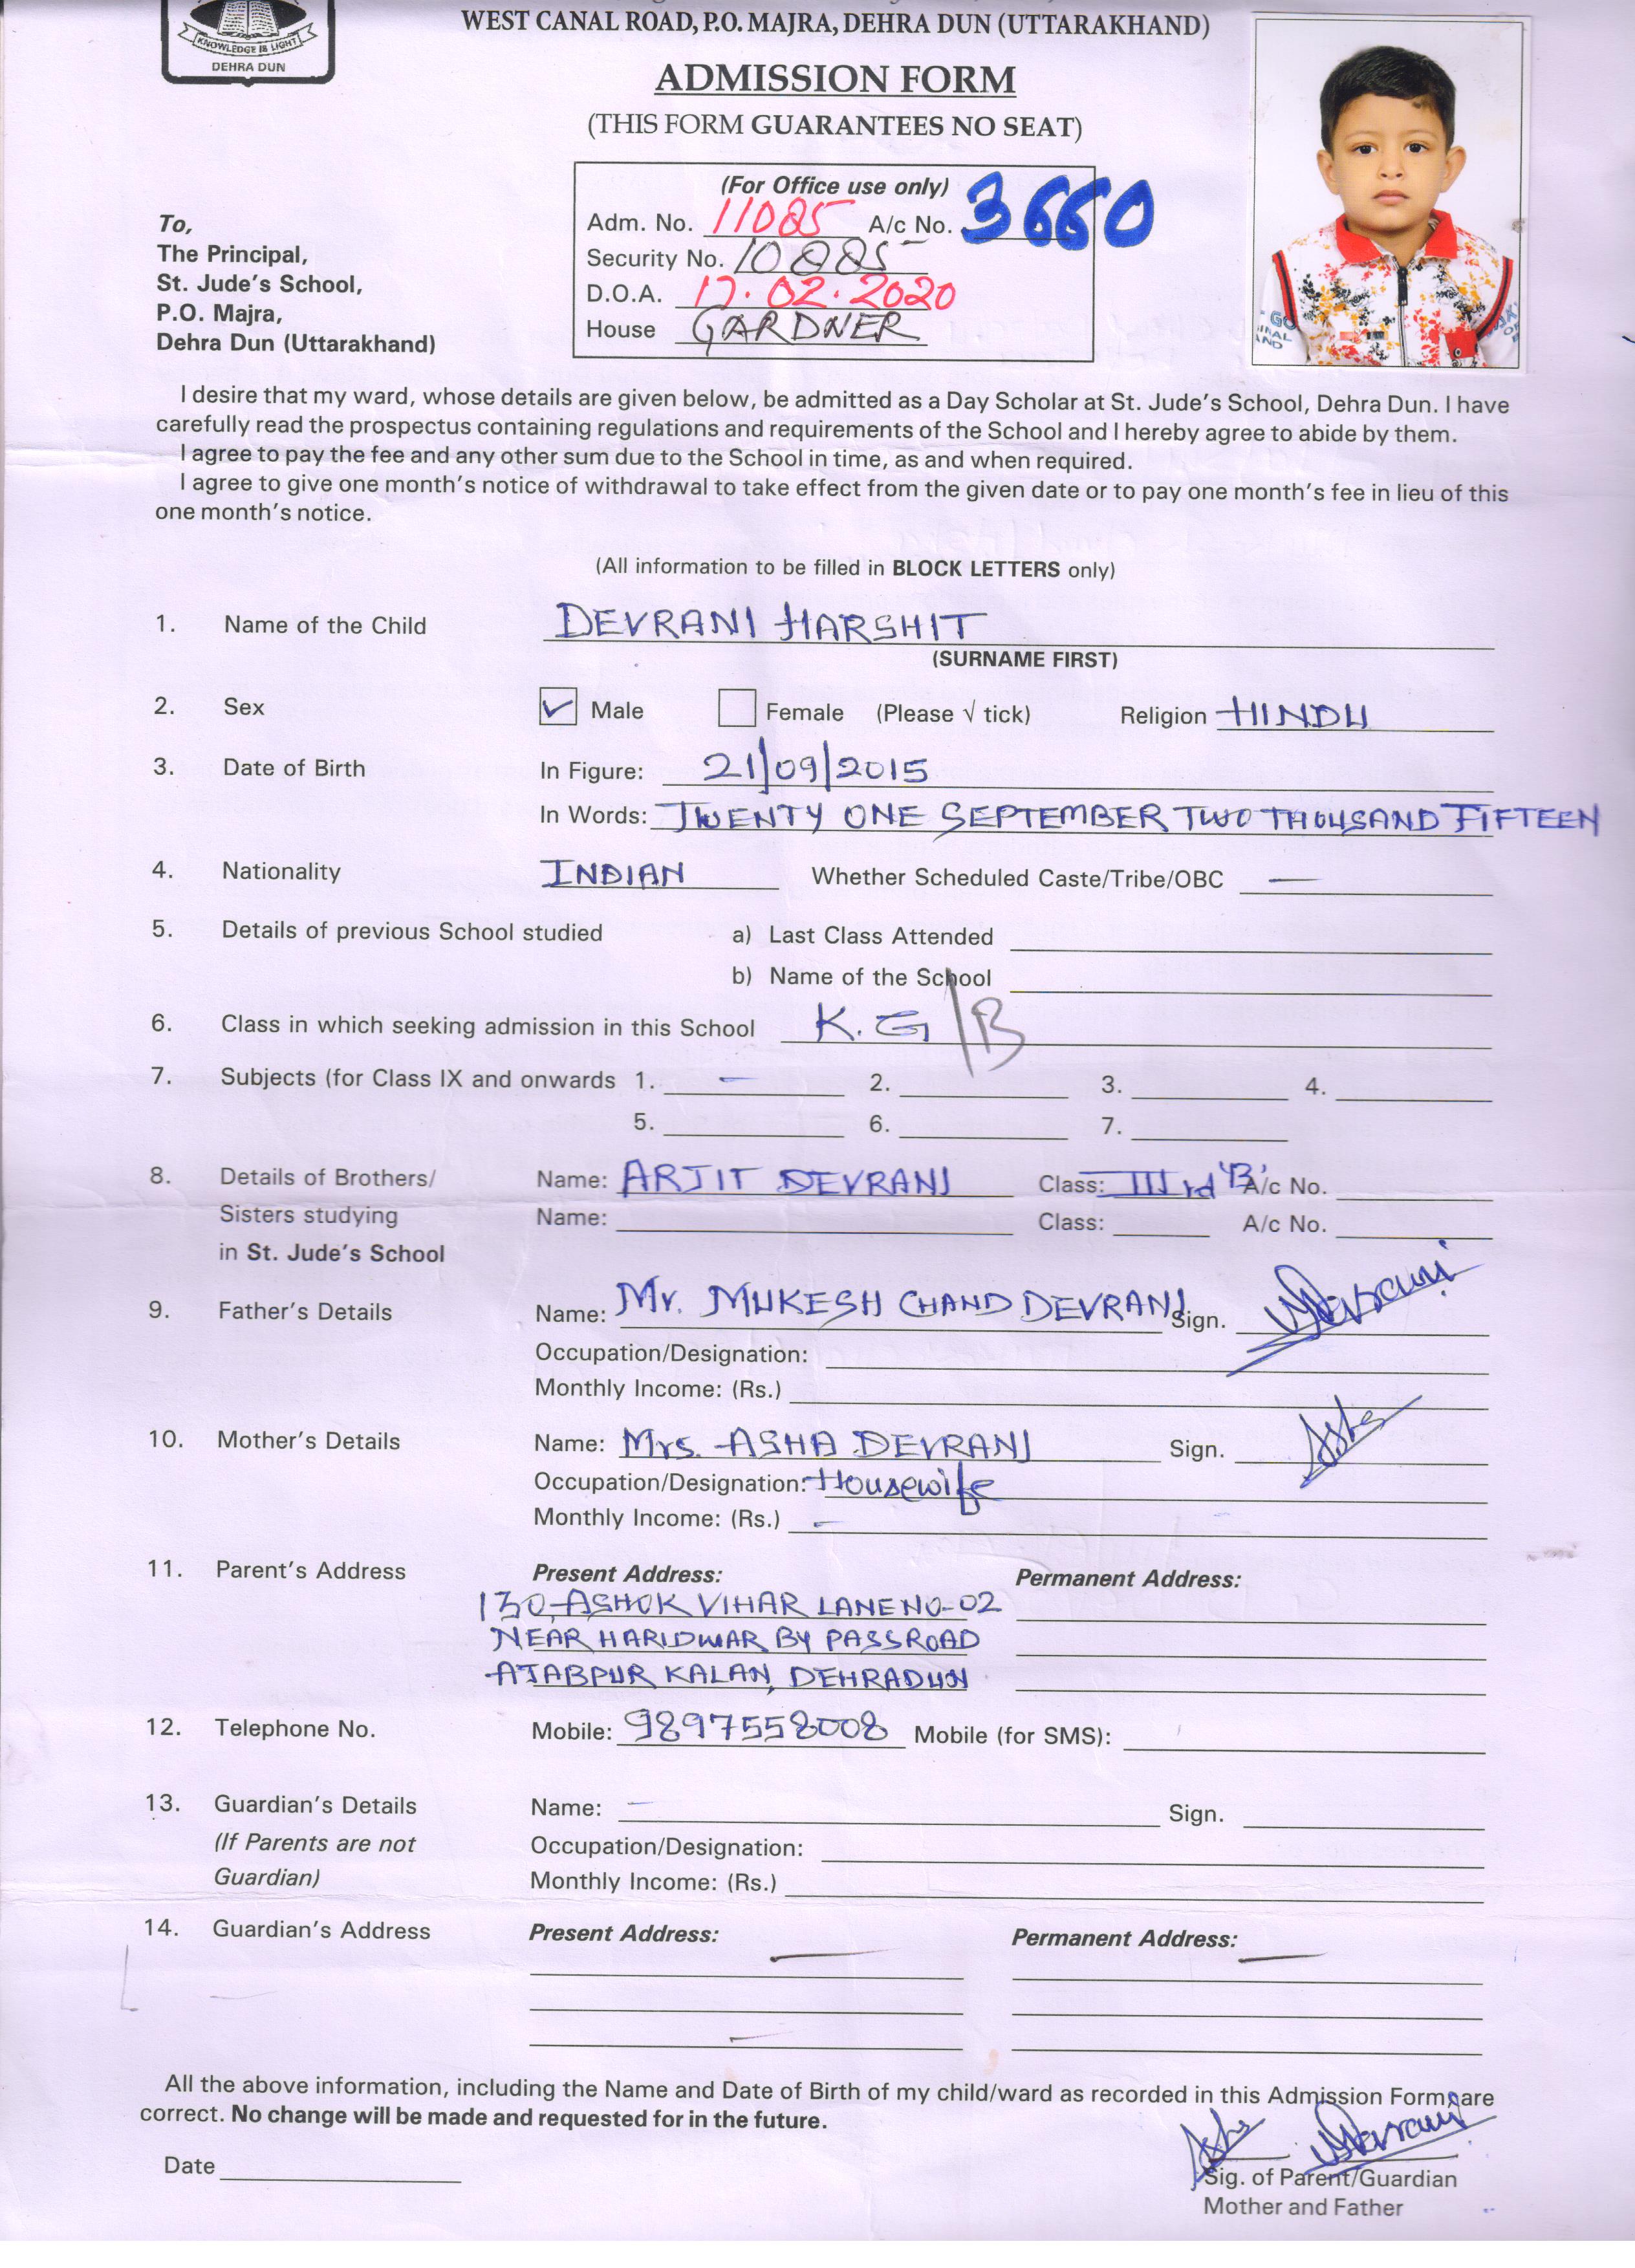 KNOWLEDGE IS LIGHT
DEHRA DUN
WEST CANAL ROAD, P.O. MAJRA, DEHRA DUN (UTTARAKHAND)
ADMISSION FORM
(THIS FORM GUARANTEES NO SEAT)
(For Office use only)
Adm. No. 11085 A/c No. 3660
Security No. 10885
D.O.A. 17.02.2020
House GARDNER
To,
The Principal,
St. Jude's School,
P.O. Majra,
Dehra Dun (Uttarakhand)
I desire that my ward, whose details are given below, be admitted as a Day Scholar at St. Jude's School, Dehra Dun. I have
carefully read the prospectus containing regulations and requirements of the School and I hereby agree to abide by them.
I agree to pay the fee and any other sum due to the School in time, as and when required.
I agree to give one month's notice of withdrawal to take effect from the given date or to pay one month's fee in lieu of this
one month's notice.
(All information to be filled in BLOCK LETTERS only)
1. Name of the Child DEVRANI HARSHIT
(SURNAME FIRST)
2. Sex ✓ Male Female (Please √ tick) Religion HINDU
3. Date of Birth In Figure: 21/09/2015
In Words: TWENTY ONE SEPTEMBER TWO THOUSAND FIFTEEN
4. Nationality INDIAN Whether Scheduled Caste/Tribe/OBC —
5. Details of previous School studied a) Last Class Attended
b) Name of the School
6. Class in which seeking admission in this School K.G/B
7. Subjects (for Class IX and onwards 1. — 2. 3. 4.
5. 6. 7.
8. Details of Brothers/ Name: ARJIT DEVRANI Class: IIIrd 'B' A/c No.
Sisters studying Name: Class: A/c No.
in St. Jude's School
9. Father's Details Name: Mr. MUKESH CHAND DEVRANI Sign. MDevrani
Occupation/Designation:
Monthly Income: (Rs.)
10. Mother's Details Name: Mrs. ASHA DEVRANI Sign. Asha
Occupation/Designation: Housewife
Monthly Income: (Rs.) —
11. Parent's Address Present Address: Permanent Address:
130, ASHOK VIHAR LANE NO-02
NEAR HARIDWAR BY PASS ROAD
AJABPUR KALAN, DEHRADUN
12. Telephone No. Mobile: 9897558008 Mobile (for SMS):
13. Guardian's Details Name: — Sign.
(If Parents are not Occupation/Designation:
Guardian) Monthly Income: (Rs.)
14. Guardian's Address Present Address: — Permanent Address: —
All the above information, including the Name and Date of Birth of my child/ward as recorded in this Admission Form are
correct. No change will be made and requested for in the future.
Asha MDevrani
Date Sig. of Parent/Guardian
Mother and Father